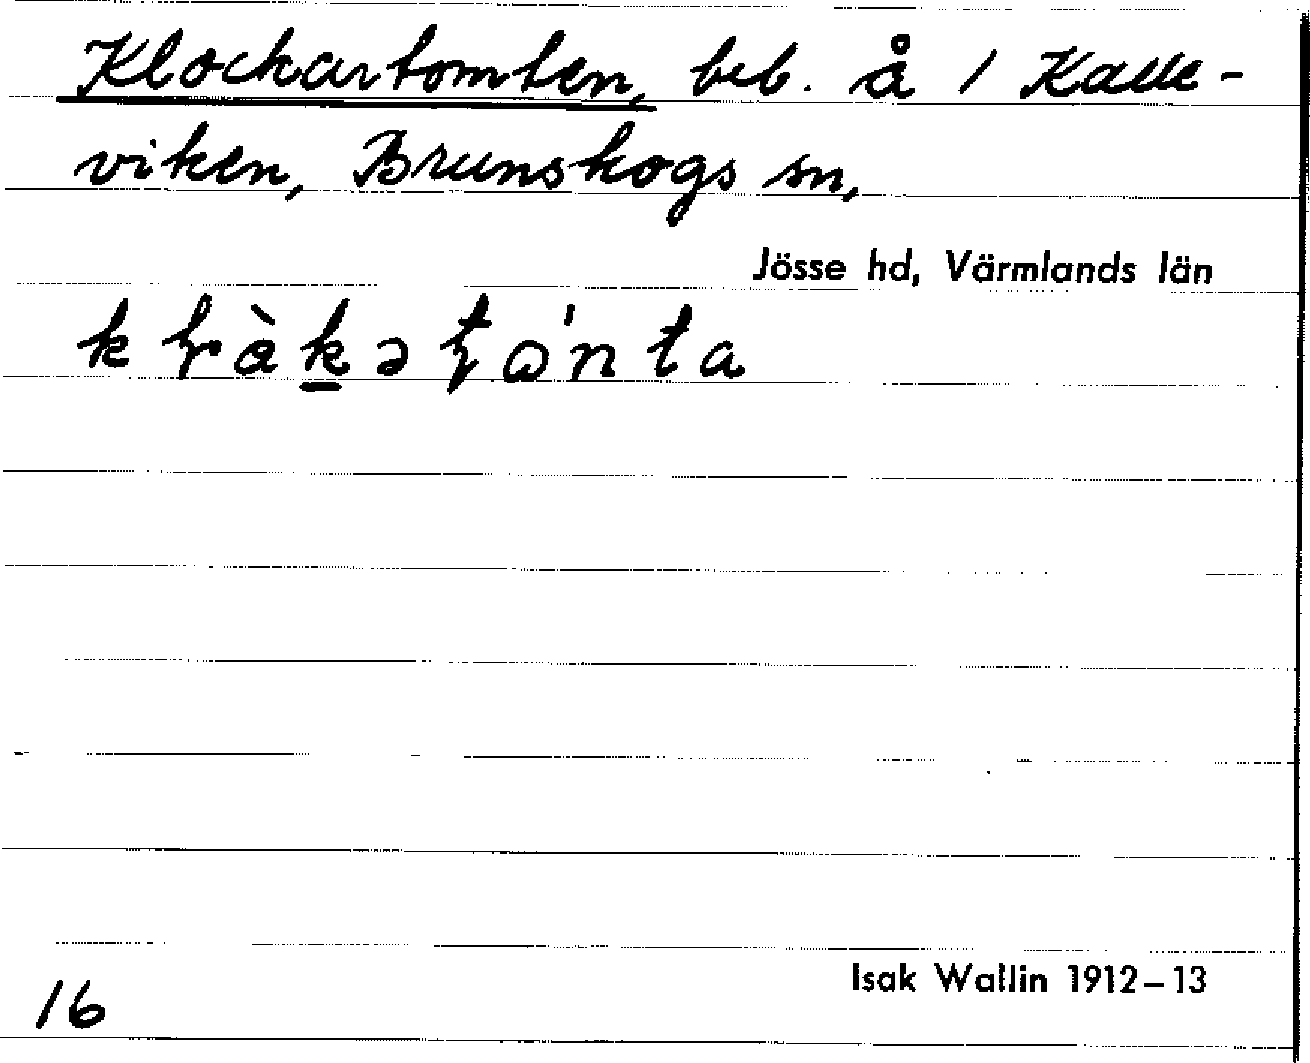 Klockartomten, beb. å 1 Kalle-
viken, Brunskogs sn,
Jösse hd, Värmlands län
Isak Wallin 1912–13
16